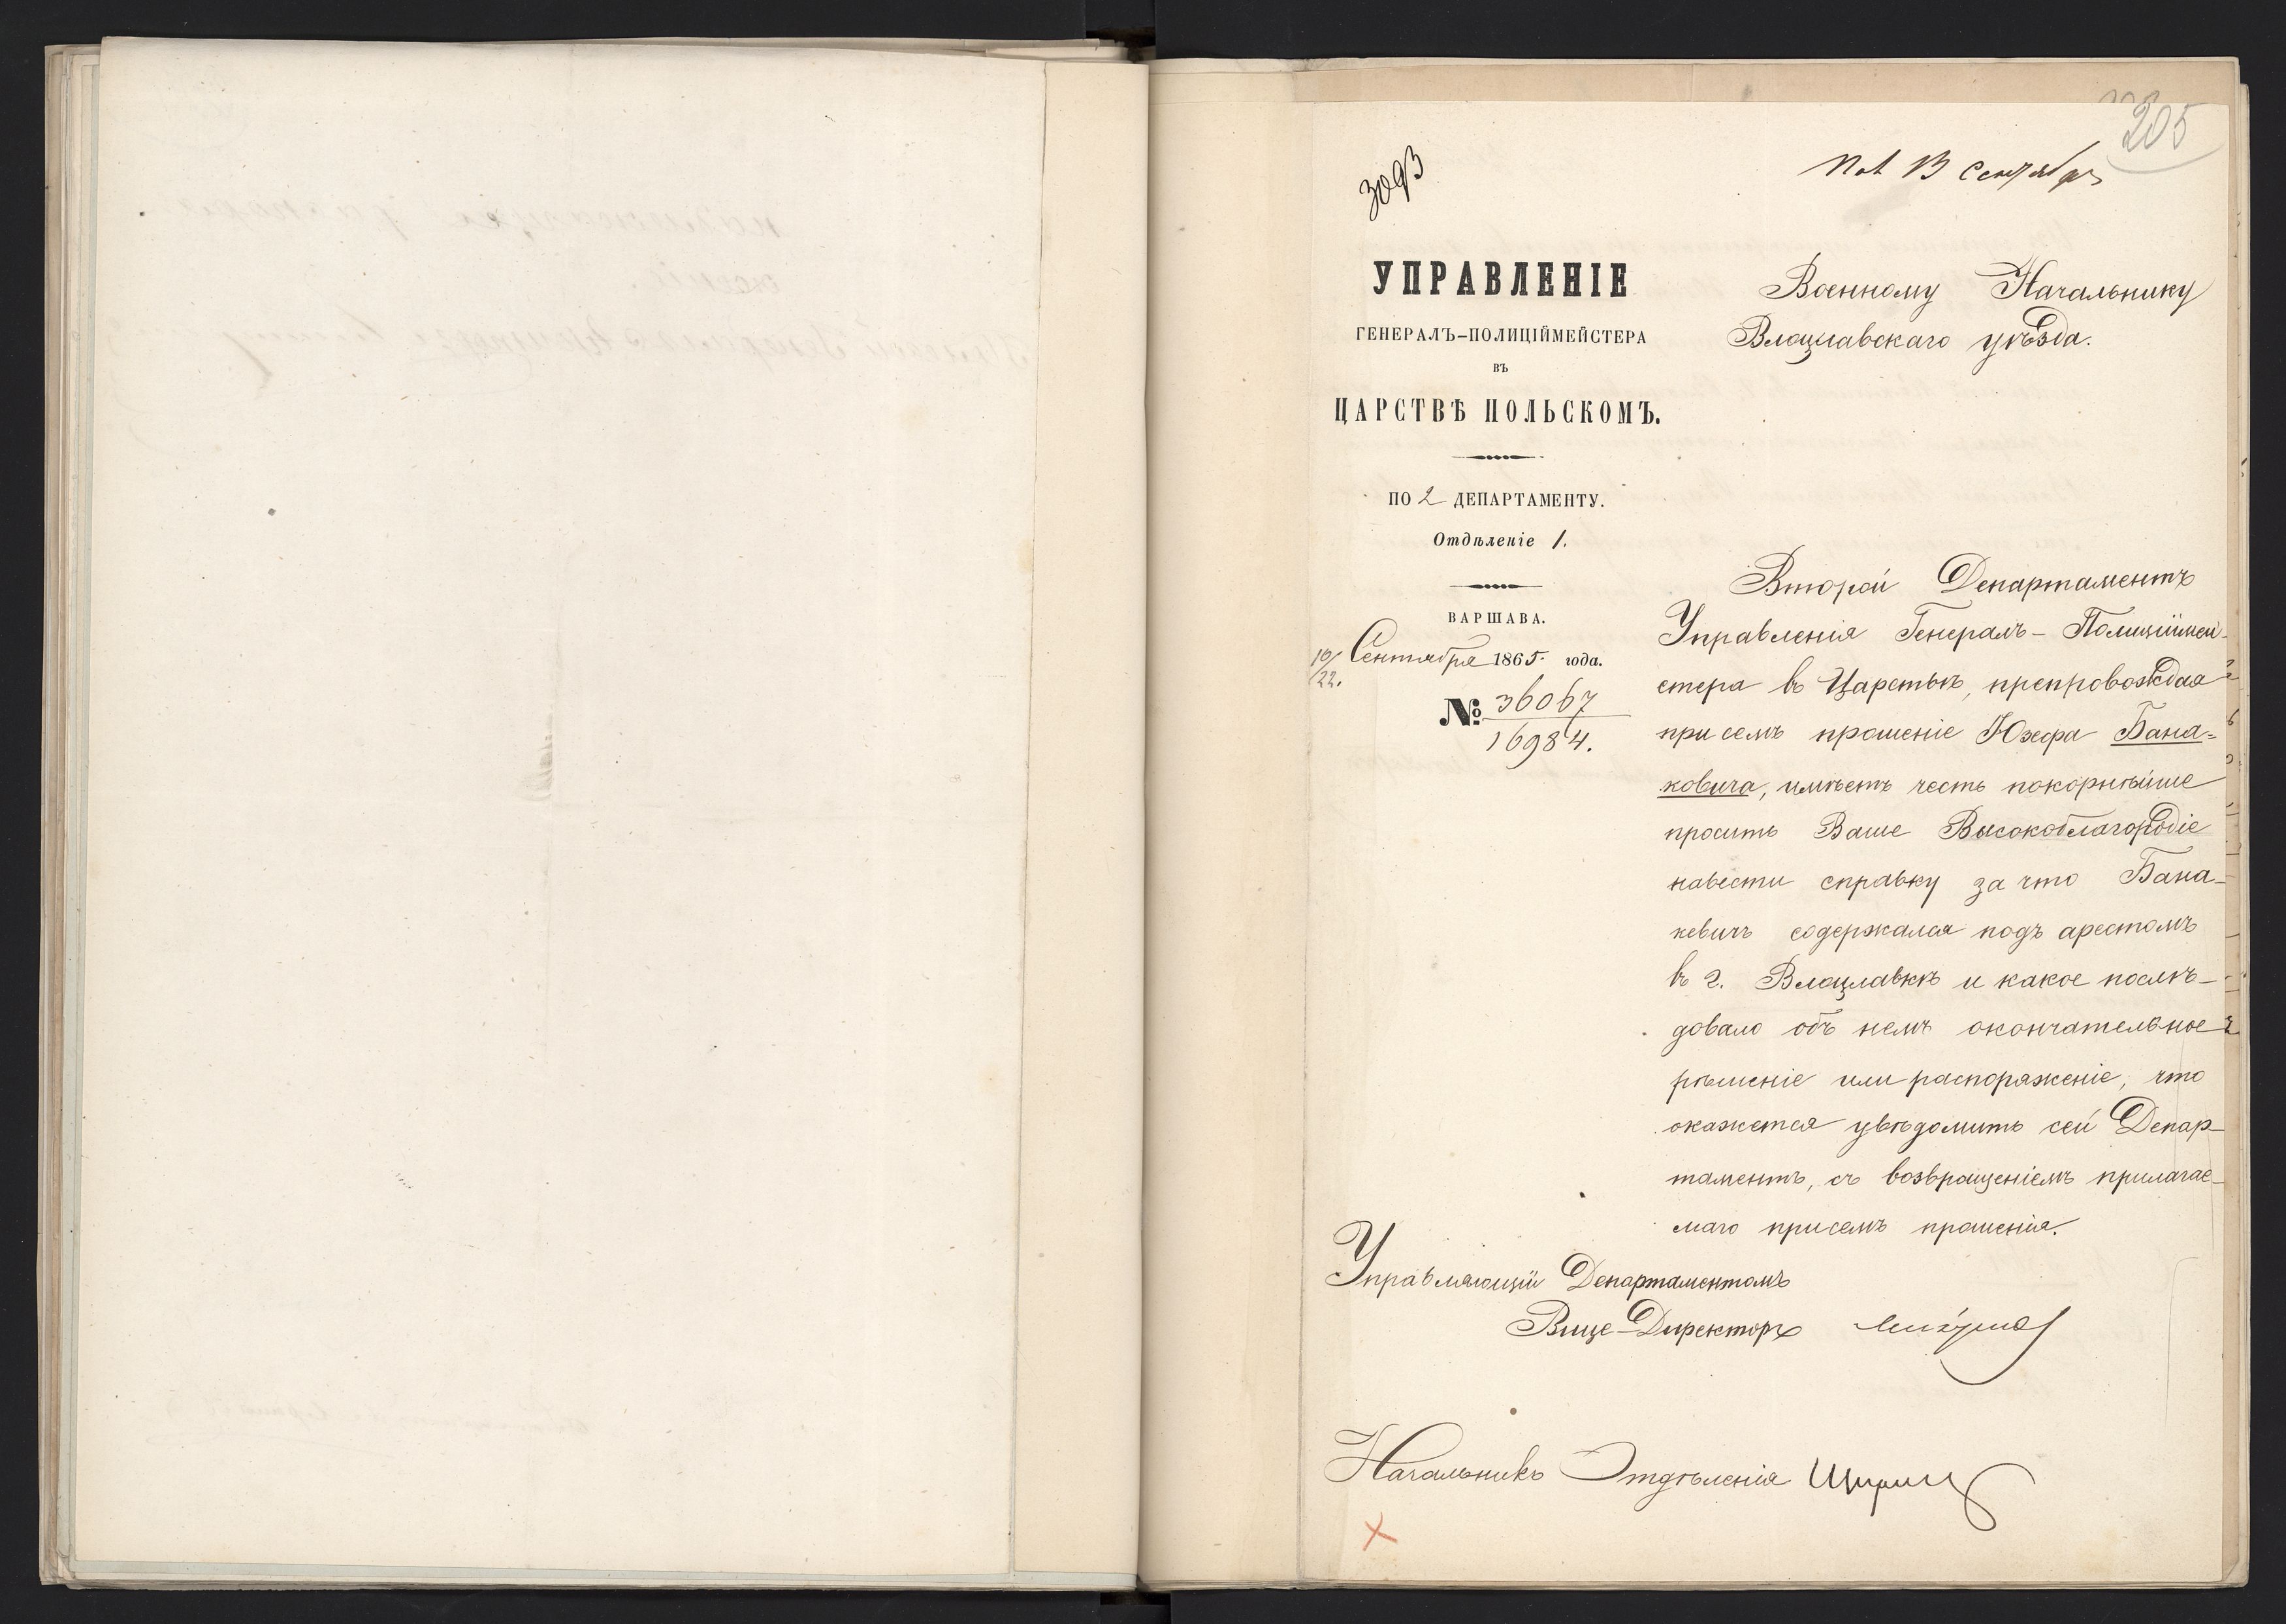 205
3093
Пол 13 Сентября
УПРАВЛЕНІЕ
ГЕНЕРАЛЪ-ПОЛИЦІЙМЕЙСТЕРА
ВЪ
ЦАРСТВѢ ПОЛЬСКОМЪ.
ПО 2 ДЕПАРТАМЕНТУ.
Отдѣленіе 1.
ВАРШАВА.
10/22. Сентября 1865 года.
№ 36067
16984.
Военному Начальнику
Влоцлавскаго уѣзда.
Второй Департаментъ
Управленія Генералъ-Полиціймей-
стера въ Царствѣ, препровождая
при семъ прошеніе Юзефа Бана-
ковича, имѣетъ честь покорнѣйше
просить Ваше Высокоблагородіе
навести справку за что Бана-
кевичъ содержался подъ арестомъ
въ г. Влоцлавкѣ и какое послѣ-
довало объ немъ окончательное
рѣшеніе или распоряженіе, что
окажется увѣдомить сей Депар-
таментъ, съ возвращеніемъ прилагае-
маго присемъ прошенія.
Управляющій Департаментомъ
Вице-Директоръ
Начальникъ Отдѣленія